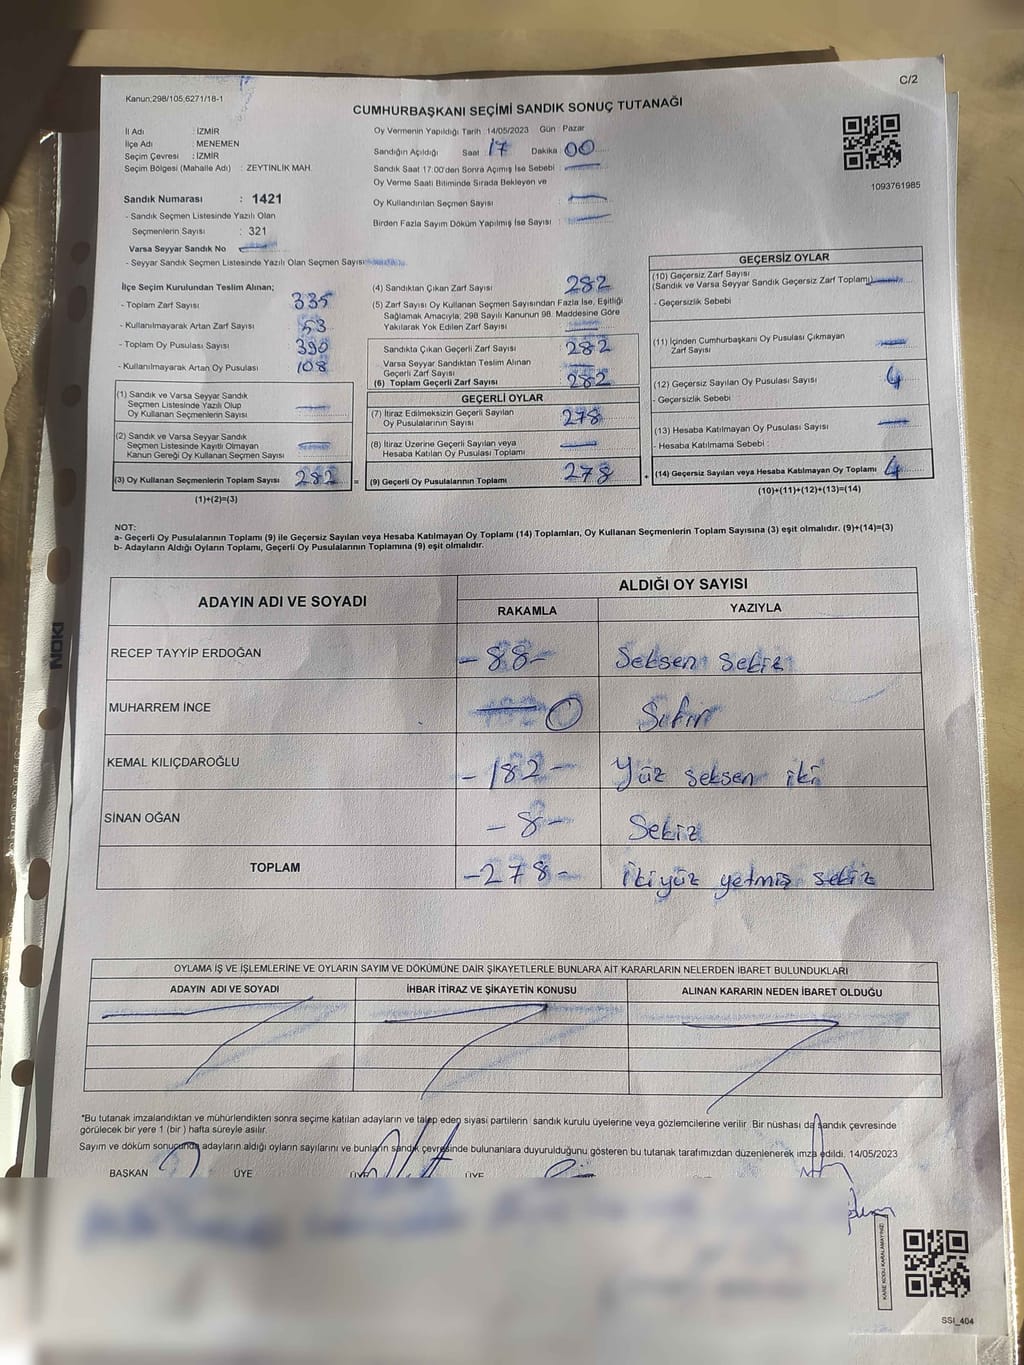 C/2
Kanun:298/105,6271/18-1
CUMHURBAŞKANI SEÇİMİ SANDIK SONUÇ TUTANAĞI
İl Adı : İZMİR
İlçe Adı : MENEMEN
Seçim Çevresi : İZMİR
Seçim Bölgesi (Mahalle Adı) : ZEYTİNLİK MAH.
Oy Vermenin Yapıldığı Tarih : 14/05/2023 Gün : Pazar
Sandığın Açıldığı Saat : 17 Dakika : 00
Sandık Saat 17:00'den Sonra Açımış İse Sebebi :
Oy Verme Saati Bitiminde Sırada Bekleyen ve
Oy Kullandırılan Seçmen Sayısı :
Birden Fazla Sayım Döküm Yapılmış İse Sayısı :
1093761985
Sandık Numarası : 1421
- Sandık Seçmen Listesinde Yazılı Olan
Seçmenlerin Sayısı : 321
Varsa Seyyar Sandık No
- Seyyar Sandık Seçmen Listesinde Yazılı Olan Seçmen Sayısı:
İlçe Seçim Kurulundan Teslim Alınan;
- Toplam Zarf Sayısı 335
- Kullanılmayarak Artan Zarf Sayısı 53
- Toplam Oy Pusulası Sayısı 390
- Kullanılmayarak Artan Oy Pusulası 108
(1) Sandık ve Varsa Seyyar Sandık
Seçmen Listesinde Yazılı Olup
Oy Kullanan Seçmenlerin Sayısı
(2) Sandık ve Varsa Seyyar Sandık
Seçmen Listesinde Kayıtlı Olmayan
Kanun Gereği Oy Kullanan Seçmen Sayısı
(3) Oy Kullanan Seçmenlerin Toplam Sayısı 282 =
(1)+(2)=(3)
(4) Sandıktan Çıkan Zarf Sayısı 282
(5) Zarf Sayısı Oy Kullanan Seçmen Sayısından Fazla İse, Eşitliği
Sağlamak Amacıyla; 298 Sayılı Kanunun 98. Maddesine Göre
Yakılarak Yok Edilen Zarf Sayısı
Sandıkta Çıkan Geçerli Zarf Sayısı 282
Varsa Seyyar Sandıktan Teslim Alınan
Geçerli Zarf Sayısı
(6) Toplam Geçerli Zarf Sayısı 282
GEÇERLİ OYLAR
(7) İtiraz Edilmeksizin Geçerli Sayılan
Oy Pusulalarının Sayısı 278
(8) İtiraz Üzerine Geçerli Sayılan veya
Hesaba Katılan Oy Pusulası Toplamı
(9) Geçerli Oy Pusulalarının Toplamı 278 +
GEÇERSİZ OYLAR
(10) Geçersiz Zarf Sayısı
(Sandık ve Varsa Seyyar Sandık Geçersiz Zarf Toplamı)
- Geçersizlik Sebebi
(11) İçinden Cumhurbaşkanı Oy Pusulası Çıkmayan
Zarf Sayısı
(12) Geçersiz Sayılan Oy Pusulası Sayısı 4
- Geçersizlik Sebebi
(13) Hesaba Katılmayan Oy Pusulası Sayısı
- Hesaba Katılmama Sebebi :
(14) Geçersiz Sayılan veya Hesaba Katılmayan Oy Toplamı 4
(10)+(11)+(12)+(13)=(14)
NOT:
a- Geçerli Oy Pusulalarının Toplamı (9) ile Geçersiz Sayılan veya Hesaba Katılmayan Oy Toplamı (14) Toplamları, Oy Kullanan Seçmenlerin Toplam Sayısına (3) eşit olmalıdır. (9)+(14)=(3)
b- Adayların Aldığı Oyların Toplamı, Geçerli Oy Pusulalarının Toplamına (9) eşit olmalıdır.
ADAYIN ADI VE SOYADI ALDIĞI OY SAYISI
RAKAMLA YAZIYLA
RECEP TAYYİP ERDOĞAN - 88 - Seksen Sekiz
MUHARREM İNCE 0 Sıfır
KEMAL KILIÇDAROĞLU - 182 - Yüz seksen iki
SİNAN OĞAN - 8 - Sekiz
TOPLAM - 278 - İkiyüz yetmiş sekiz
OYLAMA İŞ VE İŞLEMLERİNE VE OYLARIN SAYIM VE DÖKÜMÜNE DAİR ŞİKAYETLERLE BUNLARA AİT KARARLARIN NELERDEN İBARET BULUNDUKLARI
ADAYIN ADI VE SOYADI İHBAR İTİRAZ VE ŞİKAYETİN KONUSU ALINAN KARARIN NEDEN İBARET OLDUĞU
*Bu tutanak imzalandıktan ve mühürlendikten sonra seçime katılan adayların ve talep eden siyasi partilerin sandık kurulu üyelerine veya gözlemcilerine verilir. Bir nüshası da sandık çevresinde
görülecek bir yere 1 (bir) hafta süreyle asılır.
Sayım ve döküm sonucunda adayların aldığı oyların sayılarını ve bunların sandık çevresinde bulunanlara duyurulduğunu gösteren bu tutanak tarafımızdan düzenlenerek imza edildi. 14/05/2023
BAŞKAN ÜYE ÜYE ÜYE
KARE KODU KARALAMAYINIZ!
SSI_404